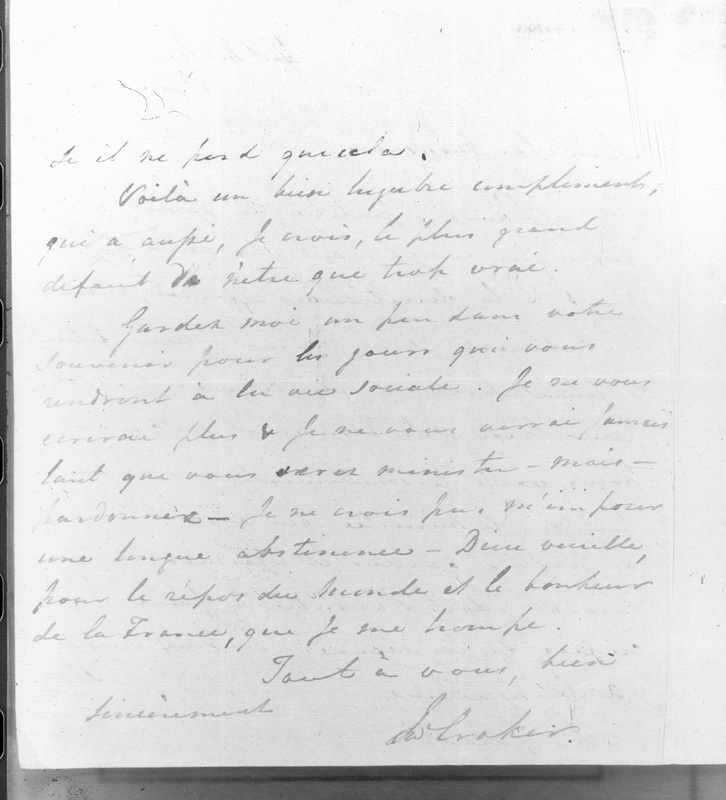 se il ne perd que cela.
Voilà un bien lugubre compliment,
qui a aussi, je crois, le plus grand
défaut de n'être que trop vrai.
Gardez moi un peu dans votre
souvenir pour les jours qui vous
rendront à la vie sociale. Je ne vous
écrirai plus & Je ne vous verrai jamais
tant que vous serez ministre – mais –
pardonnez – Je ne crois pas m'imposer
une longue abstinence – Dieu veuille,
pour le répos du Monde et le bonheur
de la France, que Je me trompe.
Tout à vous, bien
sincèrement
JWCroker.